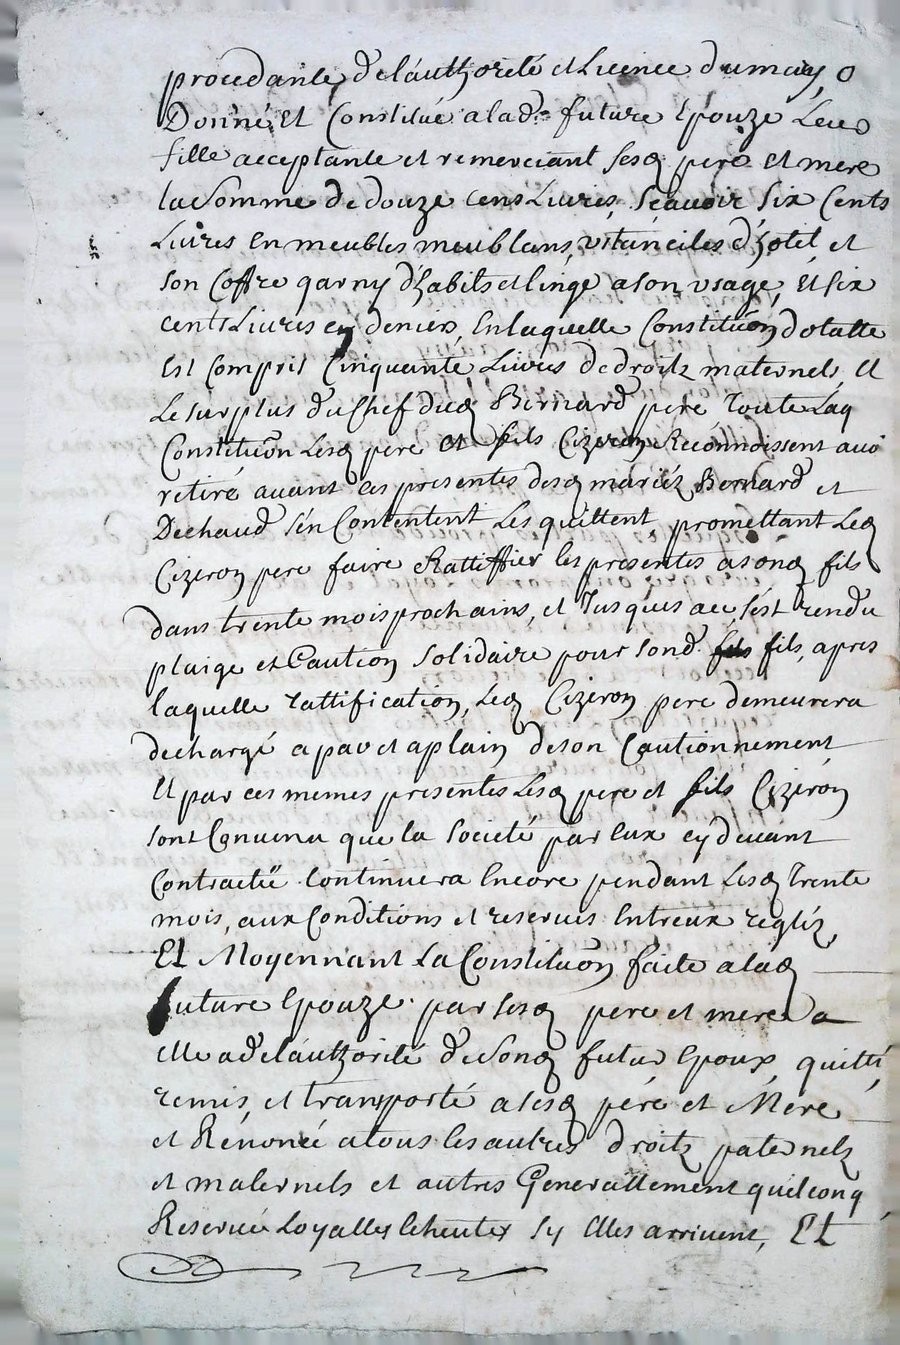 procedante, de lauthorité et Licence du mary, o
Donné, Et Constitué a lad.e future Epouze Leur
fille acceptante et remerciant sesd pere et mere
la Somme de douze cens Livres, Scavoir six Cents
Livres en meubles meublans, vtanciles dhotel, et
son Coffre garny dhabits et linge a son vsage, Et six
cents Livres en deniers, En laquelle Constitûon dotalle
Est Compris Cinquante Livres de droits maternels, Et
Le surplus du Chef dud Bernard pere Toute Laq
Constitûon Lesd pere et fils Cizeron Reconnoissent avoi
retiré auant ces presentes desd mariéz Bernard et
Dechaud s'en Contentent Les quittent promettant Led
Cizeron pere faire Rattiffier les presentes a sond fils
dans trente mois prochains, et Jusques a ce, s'est rendu
plaige et Caution solidaire pour sond. fils fils, apres
laquelle rattification, Led Cizeron pere demeurera
dechargé a pur et a plain de son Cautionnement
Et par ces memes presentes Lesd pere et fils Cizeron
sont Convenu que la societé par Eux cy deuant
Contractëe Continuera Encore pendant Lesd trente
mois, aux Conditions et reserues Entreux regléz,
Et Moyennant La Constitûon faite a lad
future Epouze par sesd pere et mere a
elle a de lauthorité de sond futur Epoux quitté,
remis, et transporté a sesd pére et Mere
et Rénoncé a tous les autres droits paternels
et maternels et autres Generallement quelconq
Reserué Loyalles Echeutes sy Elles arriuent, Et